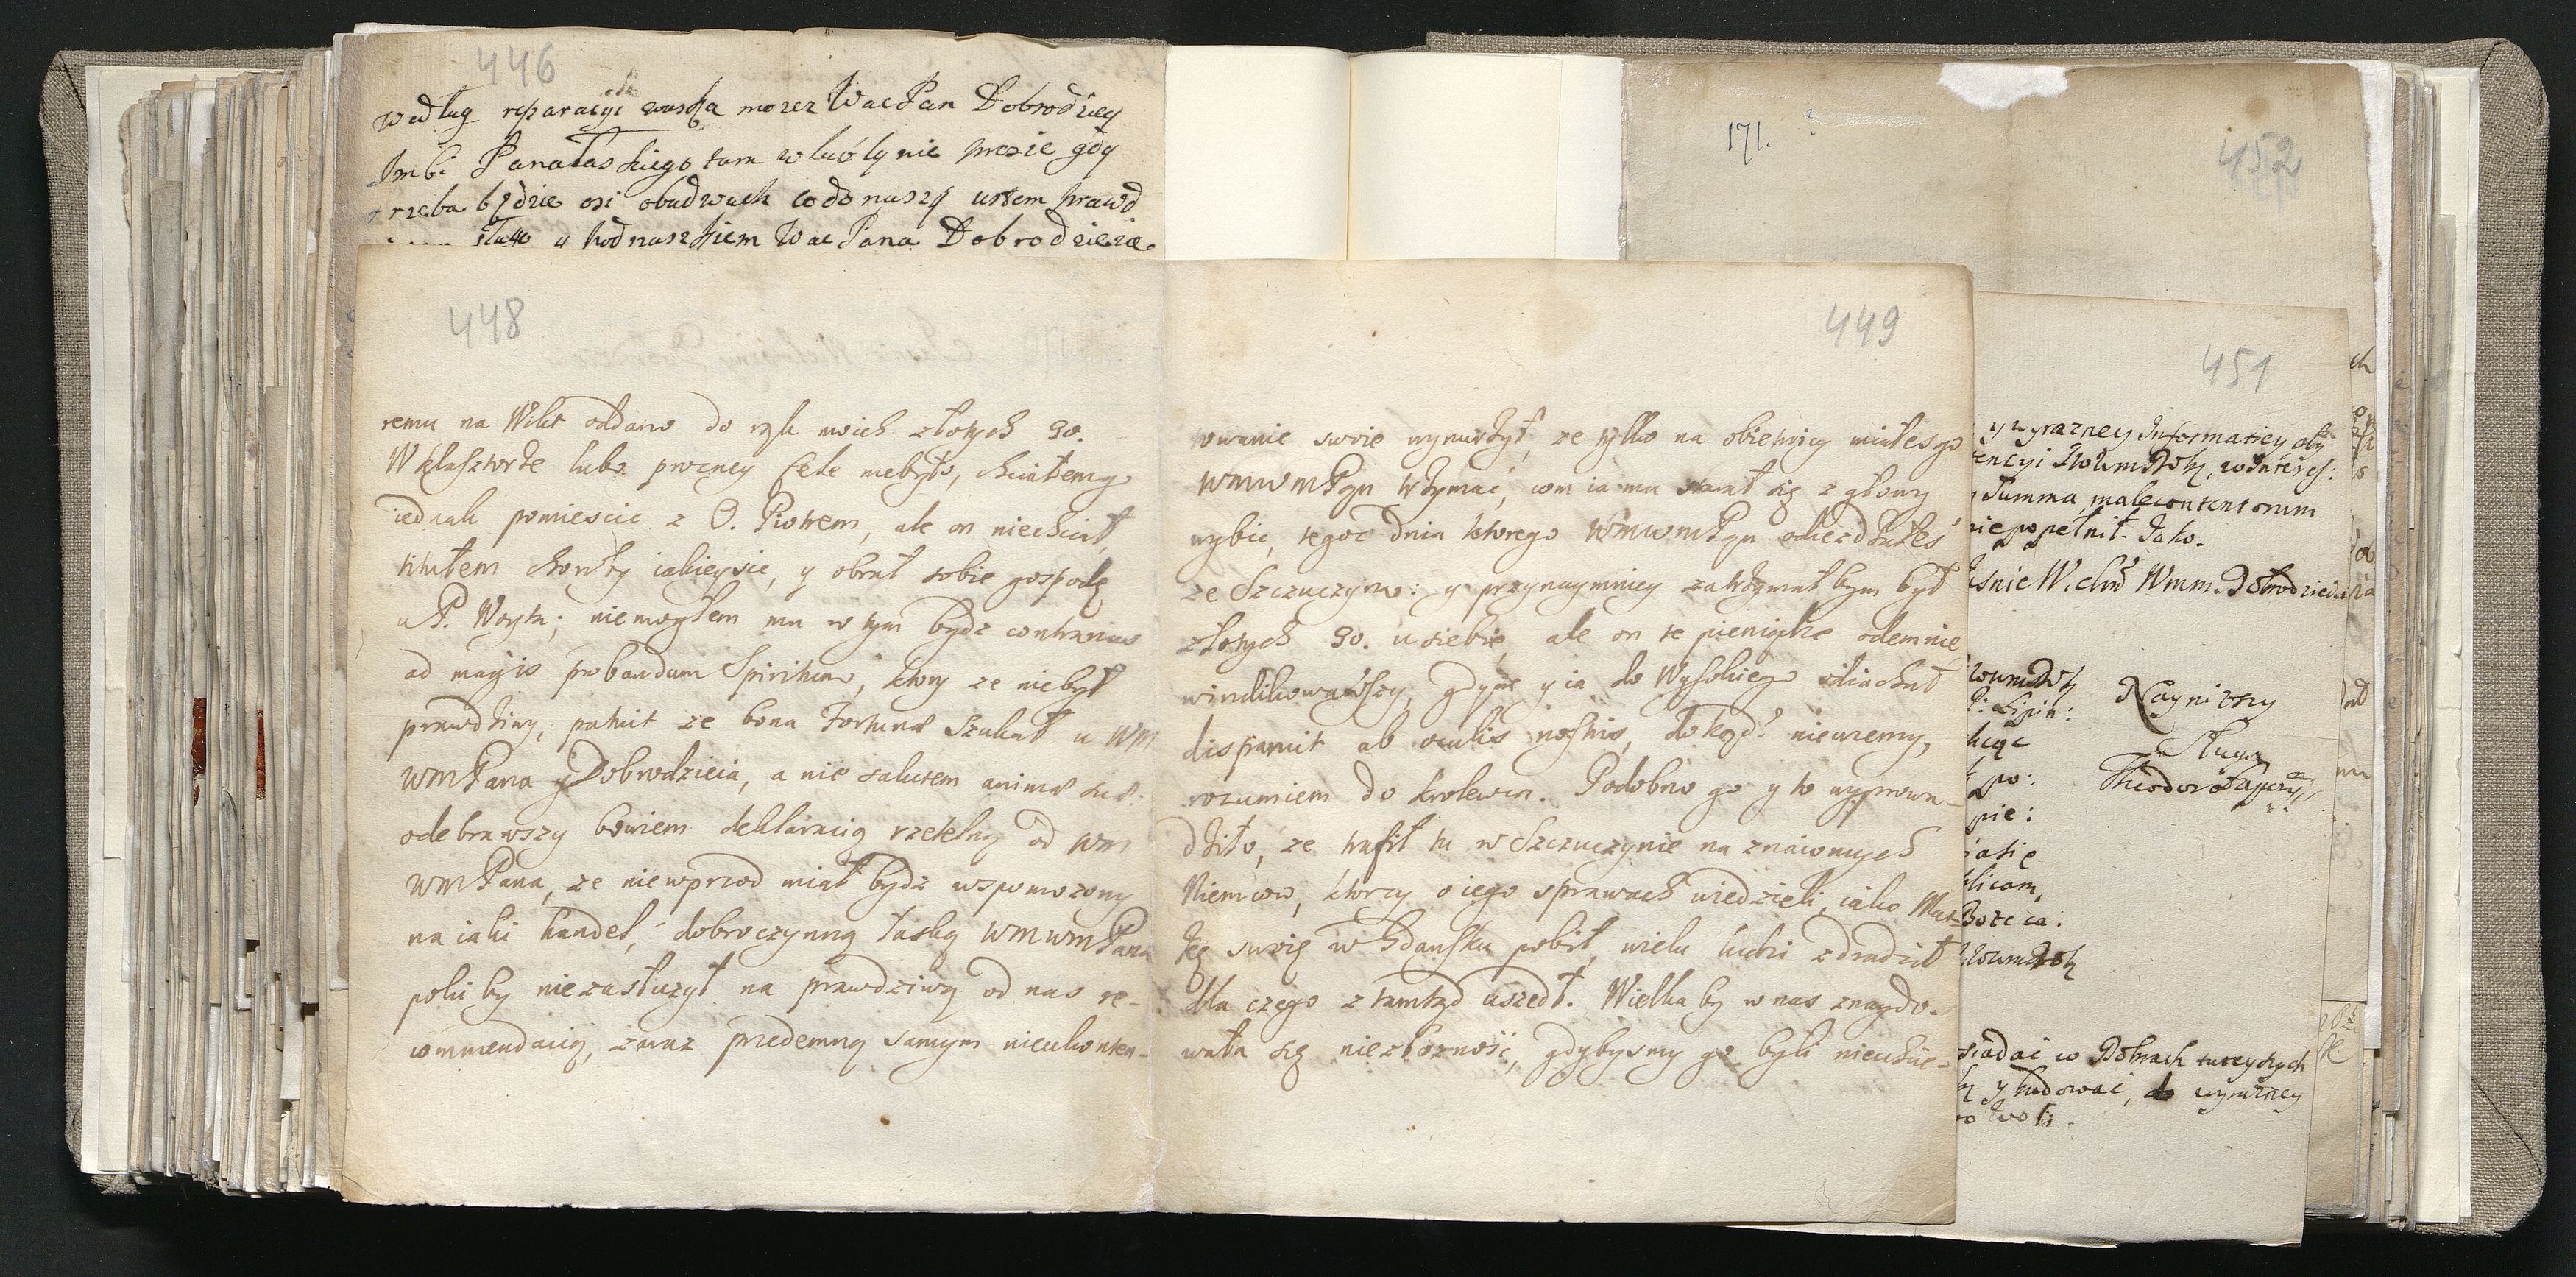 446
według reparacyi wuszka moscz WacPan Dobrodziey
tam w lubolynie prosie gdy
będzie osi obudwuch
WacPana Dobrodzieia
448
remu na Wikt oddano do rąk moich złotych 30.
W klasztorze lubo prozney Cele niebyło, chciałem go
iednak pomiescic z O. Piotrem, ale on niechciał,
titułem choroby iakieysie, y obrał sobie gospodę
u P. Woyta; niemogłem mu w tym bydz contrarius
ad magis probandum Spiritum, ktory ze niebył
prawdziwy, patuit ze bona Fortunae Szukał u WM
WMPana y Dobrodzieia, a nie salutem animae suae:
odebrawszy bowiem deklaracią rzetelną od WM
WMPana, ze niewprzod miał bydz wspomozony
na iaki handel, dobroczynną łaską WMWMPana
poki by niezasłuzył na prawdziwą od nas re-
commendacią, zaraz przedemną samym nieukonten-
449
towanie swoie wynurzył, ze tylko na obietnicy miałes go
WMWMPan trzymać, com ia mu starał się z głowy
wybic, tegoz dnia ktorego WMWMPan odiezdzałes
ze Szczuczyna: y przynaymniey zatrzymał bym był
złotych 30. u siebie, ale on te pieniądze odemnie
windikowawszy, gdym y ia do Wysokiego odiachał
disparuit ab oculis nostris, dokąd? niewiemy,
rozumiem do Krolewca. Podobno go y to wyprowa-
dziło, ze trafił tu w Szczuczynie na znaiomych
Niemcow, ktorzy o iego sprawach wiedzieli, iako Mat-
kę swoię w Gdansku pobił, wielu ludzi zdradził
dla czego z tamtąd uszedł. Wielka by w nas znaydo-
wała się niezbozność, gdybysmy go byli nieuchie-
171.
452
451
y wyrazney Informatiey aby
Summa malecontentorum
nie popełnił. Jako.
Wmm. Dobrodzieia
Nayniższy
Sługa
Theodor
siadać w Dobrach tuteyszych
y budować, do wyraźney
woli.